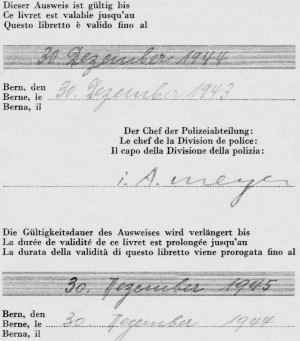 Dieser Ausweis ist gültig bis
Ce livret est valable jusqu'au
Questo libretto è valido fino al
30. Dezember 1944
Bern, den
Berne, le 30. Dezember 1943
Berna, il
Der Chef der Polizeiabteilung:
Le chef de la Division de police:
Il capo della Divisione della polizia:
i. A. Meyer
Die Gültigkeitsdauer des Ausweises wird verlängert bis
La durée de validité de ce livret est prolongée jusqu'au
La durata della validità di questo libretto viene prorogata fino al
30. Dezember 1945
Bern, den
Berne, le 30. Dezember 1944
Berna, il